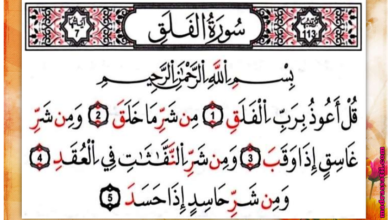 113 سُورَةُ الْفَلَقِ 7
بِسْمِ اللَّهِ الرَّحْمَٰنِ الرَّحِيمِ
قُلْ أَعُوذُ بِرَبِّ الْفَلَقِ 1 مِن شَرِّ مَا خَلَقَ 2 وَمِن شَرِّ
غَاسِقٍ إِذَا وَقَبَ 3 وَمِن شَرِّ النَّفَّٰثَٰتِ فِي الْعُقَدِ 4
وَمِن شَرِّ حَاسِدٍ إِذَا حَسَدَ 5